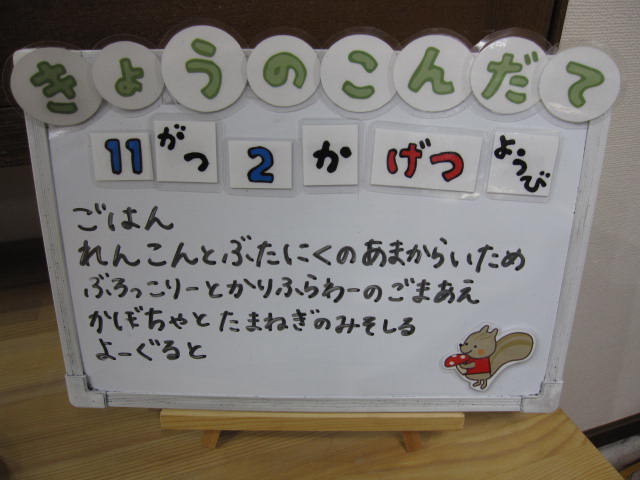 きょうのこんだて
11 がつ 2 か げつ ようび
ごはん
れんこんとぶたにくのあまからいため
ぶろっこりーとかりふらわーのごまあえ
かぼちゃとたまねぎのみそしる
よーぐると